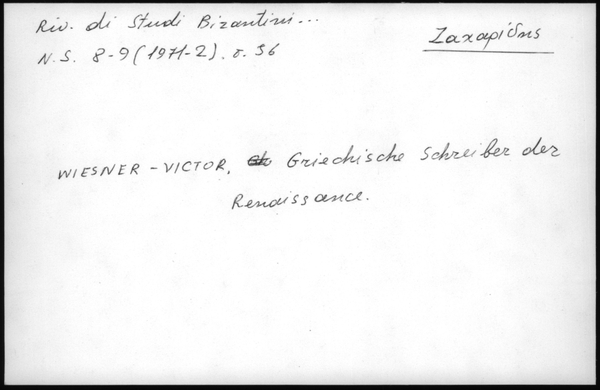 Riv. di Studi Bizantini...
N.S. 8-9 (1971-2). σ. 56
Ζαχαρίδης
WIESNER - VICTOR, Griechische Schreiber der
Renaissance.